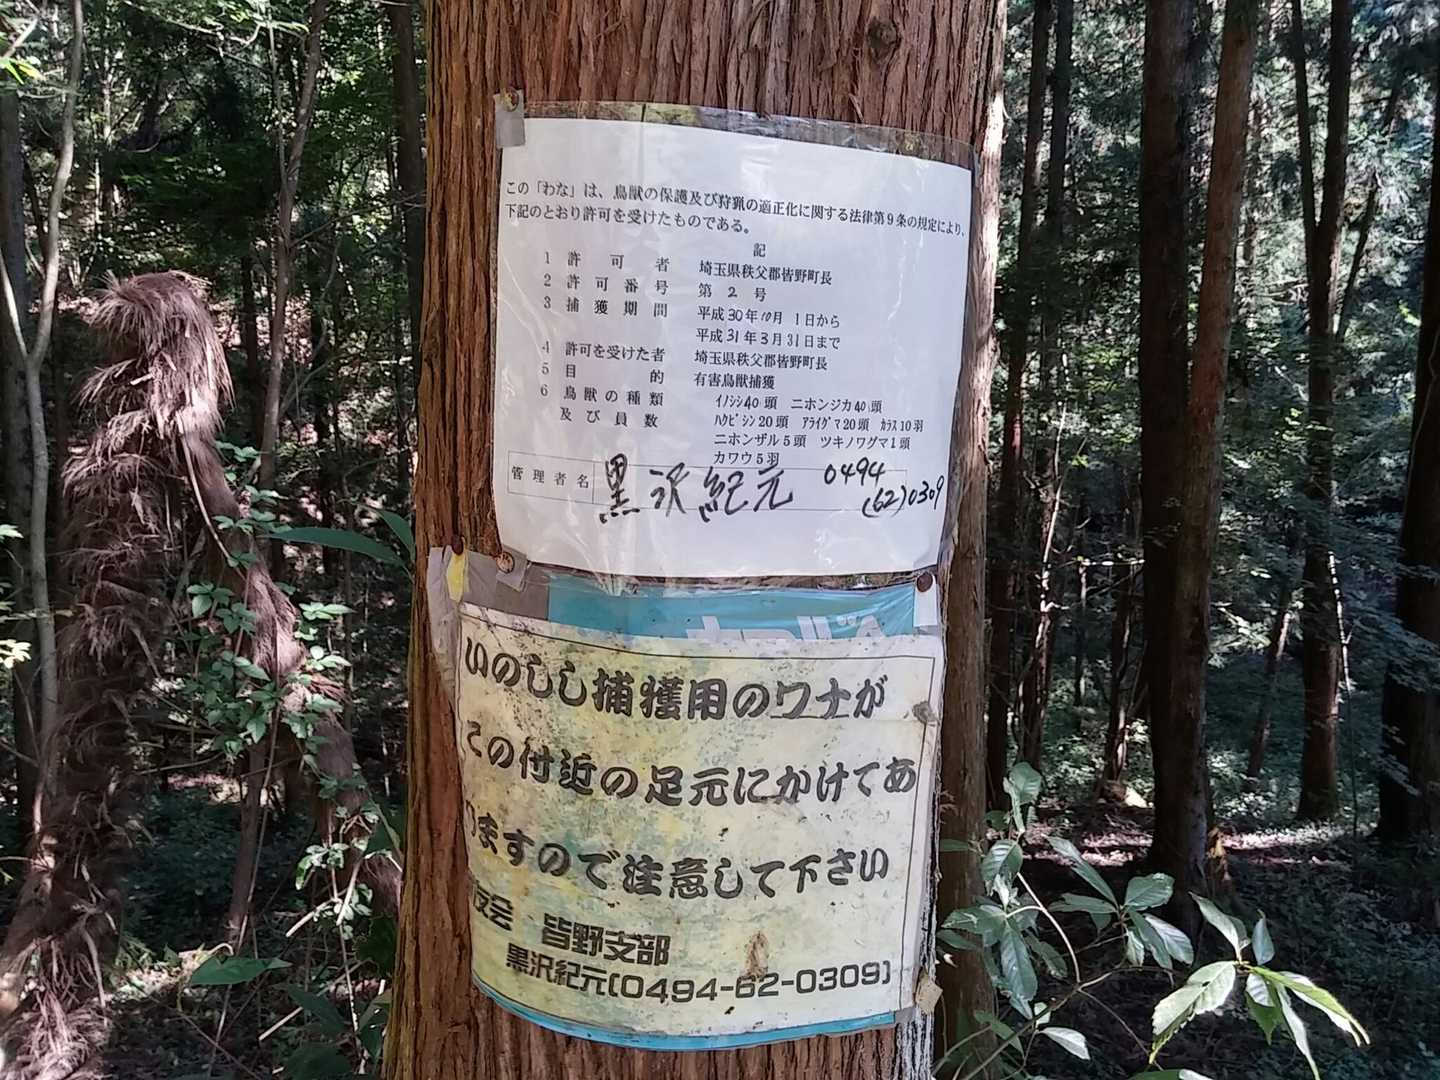 この「わな」は、鳥獣の保護及び狩猟の適正化に関する法律第9条の規定により、
下記のとおり許可を受けたものである。
記
1 許可者 埼玉県秩父郡皆野町長
2 許可番号 第2号
3 捕獲期間 平成30年10月1日から
平成31年3月31日まで
4 許可を受けた者 埼玉県秩父郡皆野町長
5 目的 有害鳥獣捕獲
6 鳥獣の種類 イノシシ40頭 ニホンジカ40頭
及び員数 ハクビシン20頭 アライグマ20頭 カラス10羽
ニホンザル5頭 ツキノワグマ1頭
カワウ5羽
管理者名 黒沢紀元 0494
(62)0309
いのしし捕獲用のワナが
この付近の足元にかけてあ
りますので注意して下さい
友会 皆野支部
黒沢紀元(0494-62-0309)